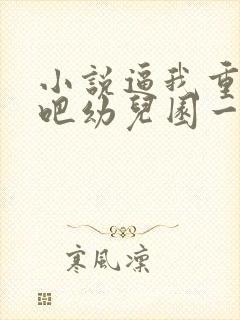 小說逼我重
吧幼兒園一
寒風凜